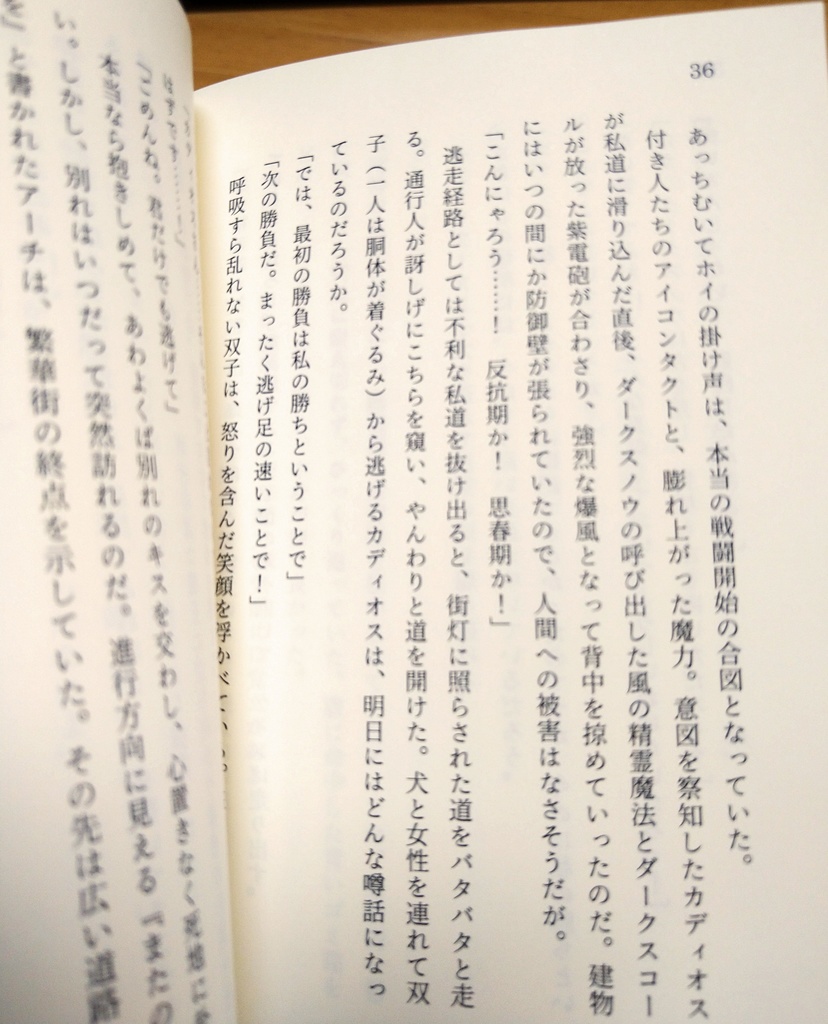 36
あっちむいてホイの掛け声は、本当の戦闘開始の合図となっていた。
付き人たちのアイコンタクトと、膨れ上がった魔力。意図を察知したカディオス
が私道に滑り込んだ直後、ダークスノウの呼び出した風の精霊魔法とダークスコー
ルが放った紫電砲が合わさり、強烈な爆風となって背中を掠めていったのだ。建物
にはいつの間にか防御壁が張られていたので、人間への被害はなさそうだが。
「こんにゃろう……！　反抗期か！　思春期か！」
逃走経路としては不利な私道を抜け出ると、街灯に照らされた道をバタバタと走
る。通行人が訝しげにこちらを窺い、やんわりと道を開けた。犬と女性を連れて双
子（一人は胴体が着ぐるみ）から逃げるカディオスは、明日にはどんな噂話になっ
ているのだろうか。
「では、最初の勝負は私の勝ちということで」
「次の勝負だ。まったく逃げ足の速いことで！」
呼吸すら乱れない双子は、怒りを含んだ笑顔を浮かべている。
はずです……！」
「ごめんね。君だけでも逃げて」
本当なら抱きしめて、あわよくば別れのキスを交わし、心置きなく
い。しかし、別れはいつだって突然訪れるのだ。進行方向に見える『またの
を』と書かれたアーチは、繁華街の終点を示していた。その先は広い道路